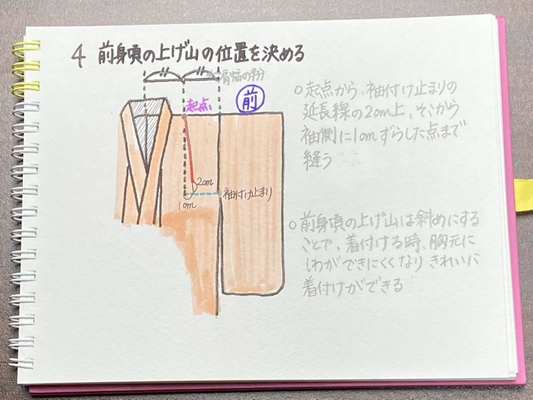 4 前身頃の上げ山の位置を決める
肩幅の
起点
前
2cm
1cm
袖付け止まり
○起点から、袖付け止まりの
延長線の2cm上、そこから
袖側に1cmずらした点まで
縫う
○前身頃の上げ山は斜めにする
ことで、着付ける時、胸元に
しわができにくくなりきれいに
着付けができる